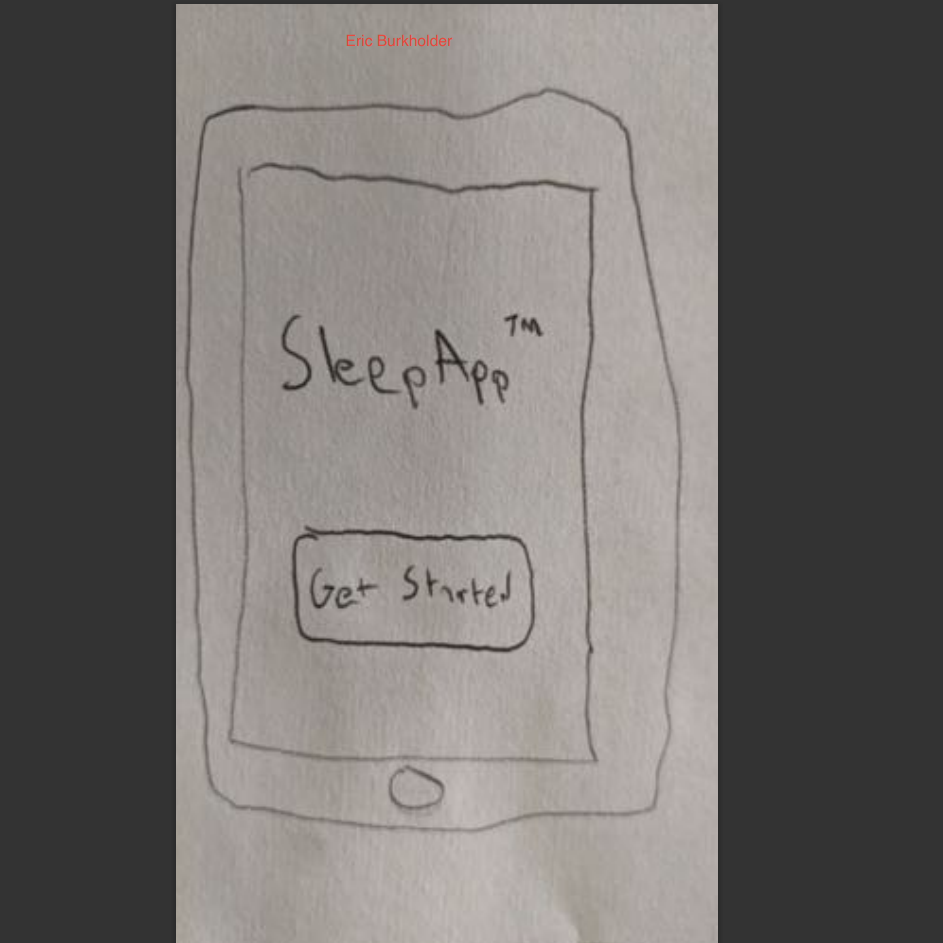 Eric Burkholder
SleepApp™
Get Started